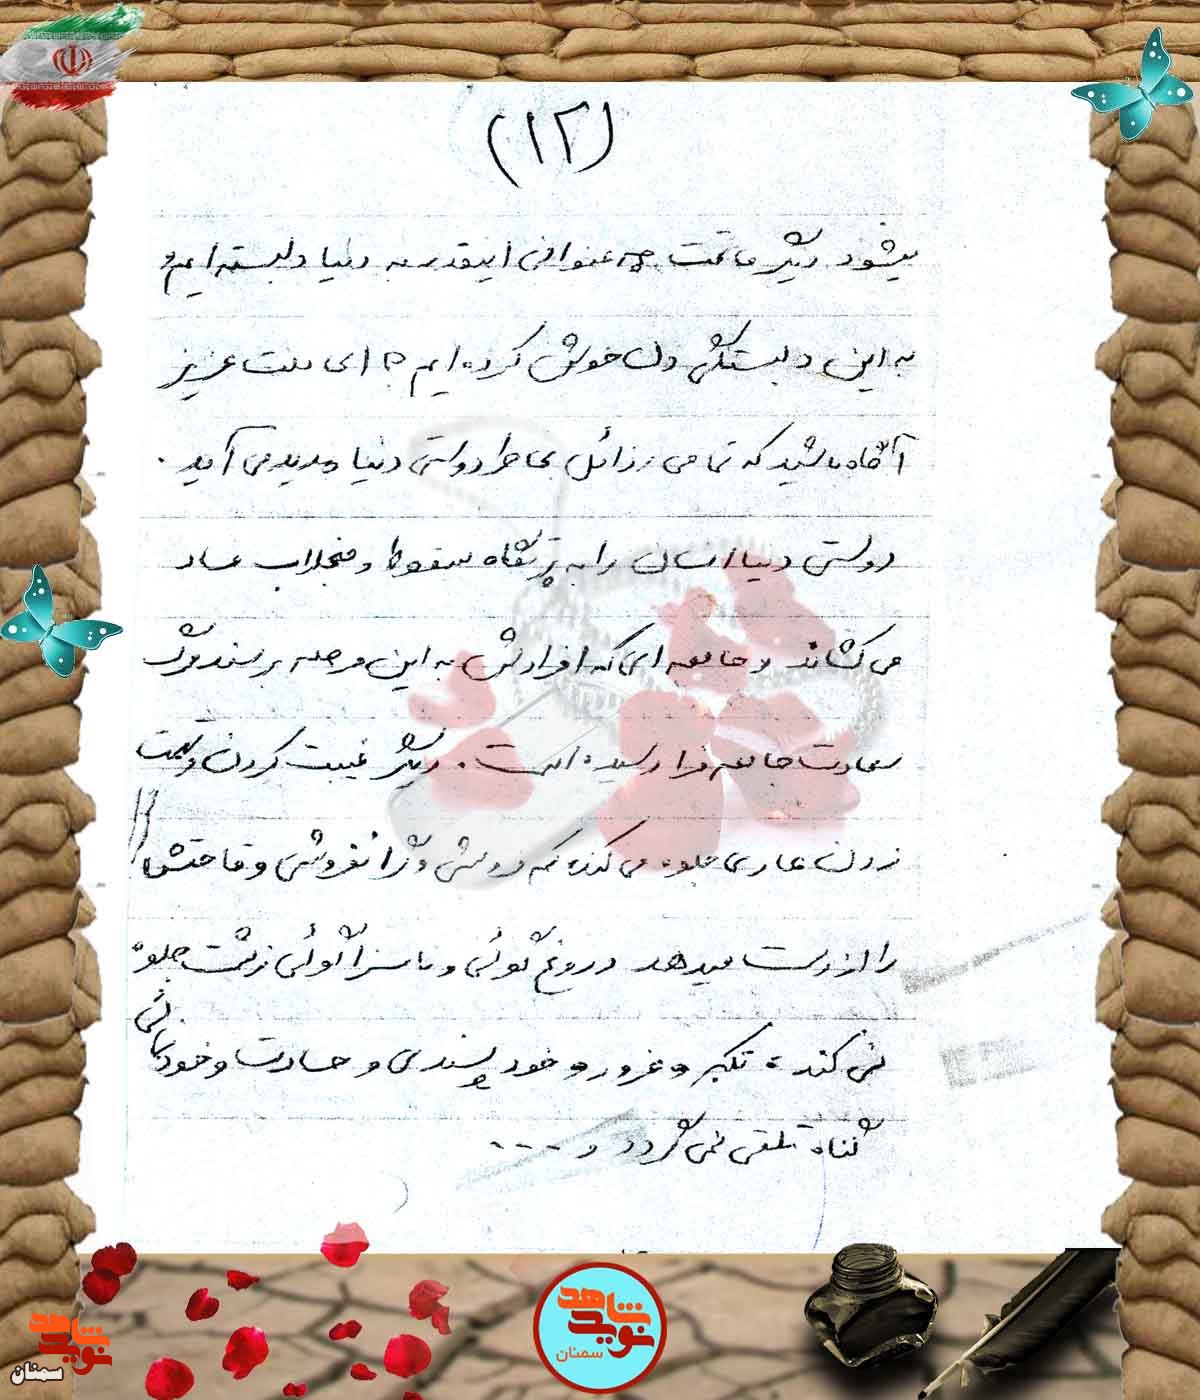 (۱۲)
میشود دیگر ما تحت چه عنوانی اینقدر به دنیا دلبسته ایم و
به این دلبستگی دل خوش کرده ایم ؟ ای ملت عزیز
آگاه باشید که تمامی رذائل بخاطر دوستی دنیا پدید می آید .
دوستی دنیا انسان را به پرتگاه سقوط و منجلاب فساد
می کشاند و جامعه ای که افرادش به این مرحله برسند مرگ
سعادت جامعه فرا رسیده است . دیگر غیبت کردن و تهمت
زدن عادی جلوه می کند کم فروشی و گرانفروشی و قباحتش
را از دست میدهد دروغ گوئی و ناسزا گوئی زشت جلوه
نمی کند ، تکبر و غرور و خود پسندی و حسادت و خودنمائی
گناه تلقی نمی گردد و ....
نوید شاهد
سمنان
نوید شاهد
سمنان